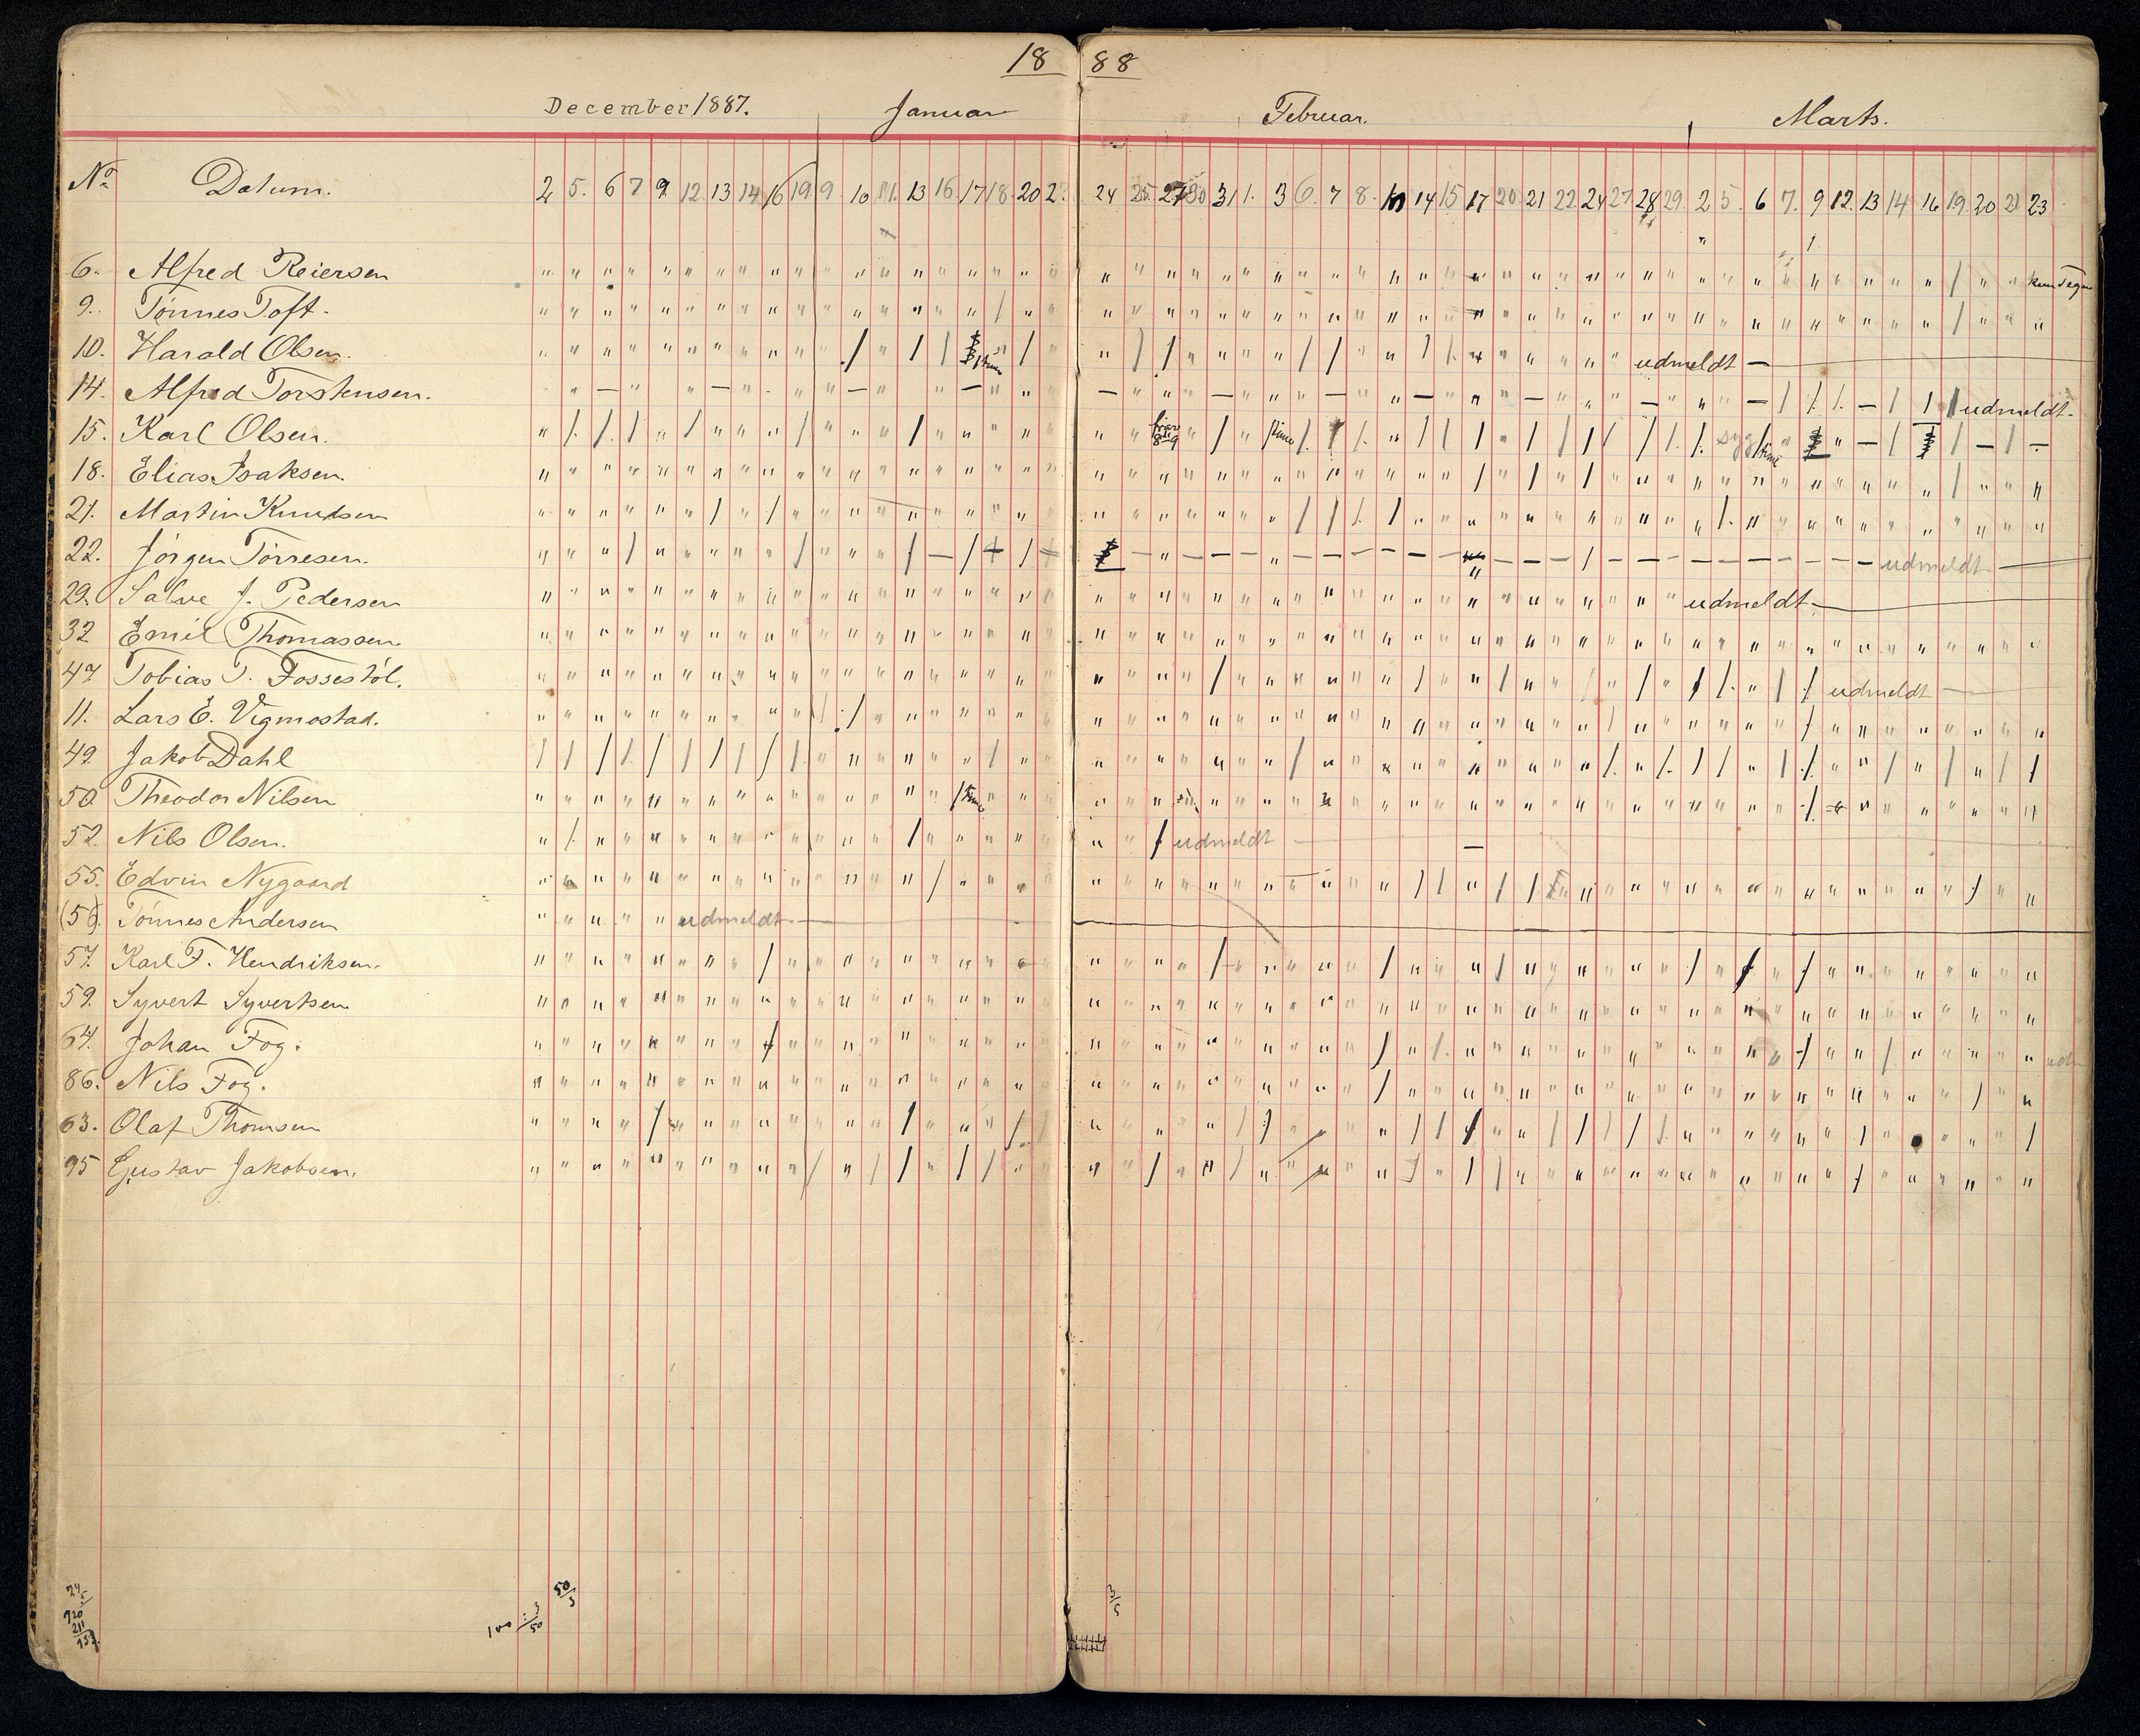 18 88
December 1887. Januar Februar. Marts.
No Datum. 2 5. 6 7. 9 12. 13 14 16 19 9. 10 11. 13 16 17 18. 20 2 24 25. 27 30 31 1. 3 6. 7 8. 14 15 17 20. 21 22. 24 27. 28 29. 2 5. 6 7. 9 12. 13 14 16 19. 20 21 23
6. Alfred Reiersen " " " " " " " " " " " " " " " " " " " " " " " " " " " " " " " " " " " " " " " " " " " " " " " " " / " " kun Tegn
9. Tönnes Toft. " " " " " " " " " " " " " " " " " / " " " " " " " " " " " " " " " " " " " " " " " " " " " " " " " / " " "
10. Harald Olsen. " " " " " " " " " " / " / / / time / " " / / " " " " / / " " / / " " " " " " udmeldt —
14. Alfred Torstensen. " — " " — " " — " — " — " " — " — " — " — " — " — " — / / / — / / / udmeldt.
15. Karl Olsen. " / / / " / " " " / " " " / " " " " " " 8-9 " / " time / / / " / / / " / / / / / / / / syg / time " " — / / — / —
18. Elias Isaksen. " " " " " " " " " " " " " " " " " " " " " " " " " " " " " " " / " / " / " " " " " " " " " " " " / " " "
21. Martin Knudsen " " " " " " / " / " " " " " " " " " " " " " " " " " / / / / " " " " " " " " " " " / " " " " " " " " " " "
22. Jörgen Törresen. " " " / " " " " " / " " " / — / + / + — " — — — " — — — — — — — — / — — — — — — — — — udmeldt —
29. Salve J. Pedersen " " " " " " " " " " " " " " " " " " " " " " " " " " " " " " " " " " " " " " " udmeldt —
32 Emil Thomassen. " " " " " " " " " " " " " " " " " " " " " " " " " " " " " " " " " " " " " " " " " " " " " " " " " " " "
47 Tobias T. Fossestöl. " " " " " " " " " " " " " " " " " " " " " " / " " " " " " / " " / " " / " / " / / " / / udmeldt —
11. Lars E. Vigmostad. " " " " " " " " " " / / " " " " " " " " " " " " " " " " " " " " " " " " / " " " " " " / " " " " " " " "
49 Jakob Dahl / / / / / / / / / / " " " " " " / " " " " " " " " " / " " " " " " " " " " / " / / / " / / " " / " / " / /
50. Theodor Nilsen " " " " " " " " " " " " " " " / time " " " " " " " " " " " " " " " " " " " " " " " " " " " " / " " " " " " "
52. Nils Olsen. " / " " " " " " " " " " " / " " " " " " / udmeldt — —
55. Edvin Nygaard " " " " " " " " " " " " " " / " " " " " " " " " " " " " " / / " / / " " " " " " " " " " " " " " / " "
(56). Tönnes Andersen " " " " " udmeldt. —
57. Karl F. Hendriksen. " " " " " " " " / " " " " " " " " " " " " " / " " " " " / " " " / " " " " " " / / " / " " " " " " " "
59. Syvert Syvertsen " " " " " " " " " " " " " " " " " " " " " " " " " " " " " " " " " " " " " " " " " " " " " " " " " "
64. Johan Fog. " " " " " " " " / " " " " " " " " " " " " " " " " " " " / " / " " " " " " " " " " " " / " " / " " " " "
86. Nils Fog. " " " " " " " " " " " " " " " " " " " " " " " " " " " " / " " " " " " " " " " " " " " " " " " " / " "
63. Olaf Thomsen " " " " / " " " " " " " " / " " " / / " " " " " / / " " " " / / / " " / / / / / " " " " " " " / " " " " /
95 Gustav Jakobsen. " " " " " " " " " / " / / " / / " " " " / " " / " " " " " " / / " " " " " " " " " " " " / " " " " " "
50
100 : 3
50